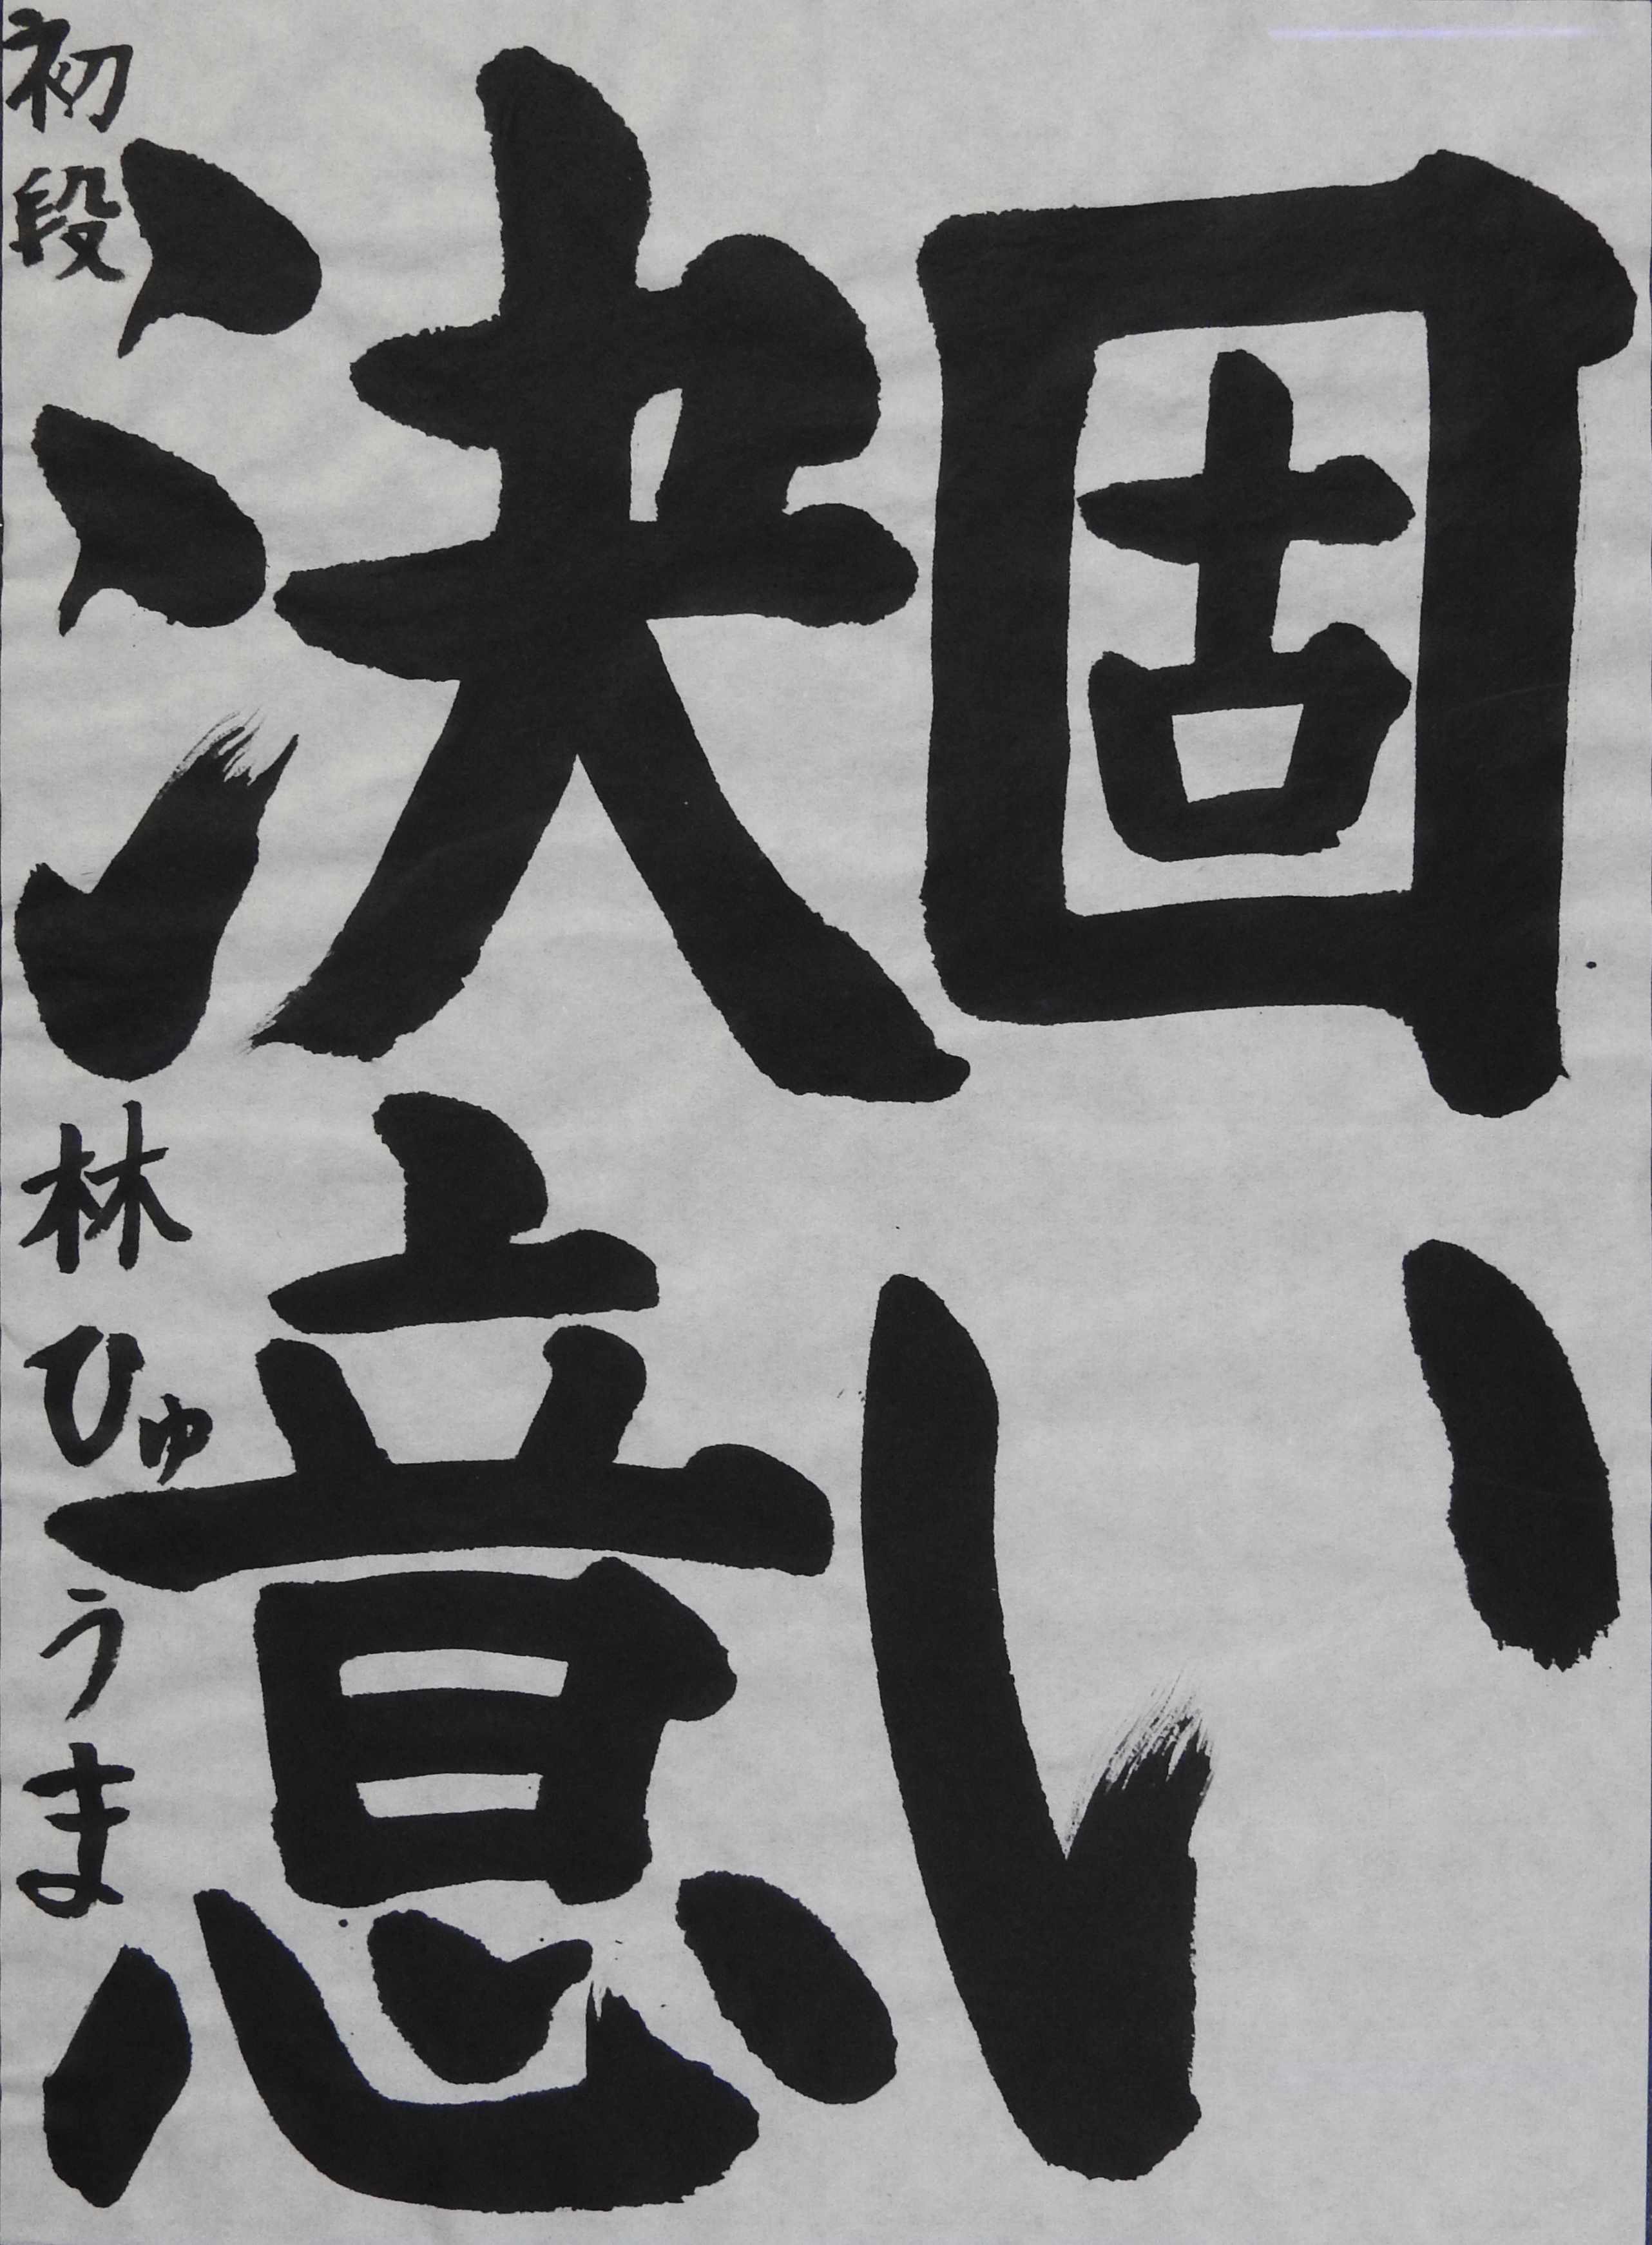 固い
決意
初段 林ひゅうま